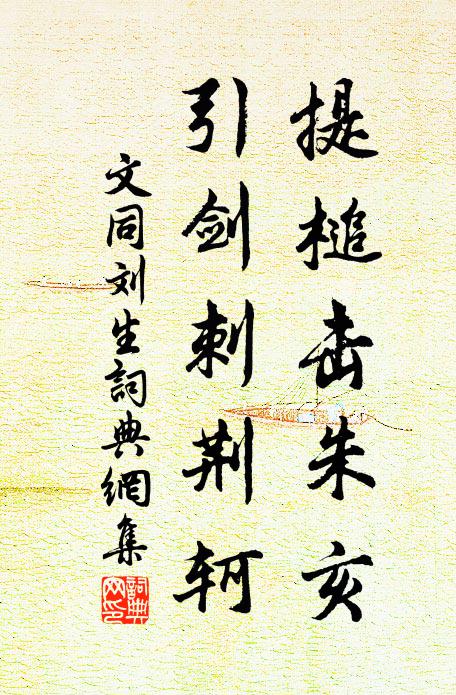 提槌击朱亥
引剑刺荆轲
文同刘生詞典網集
詞典网印